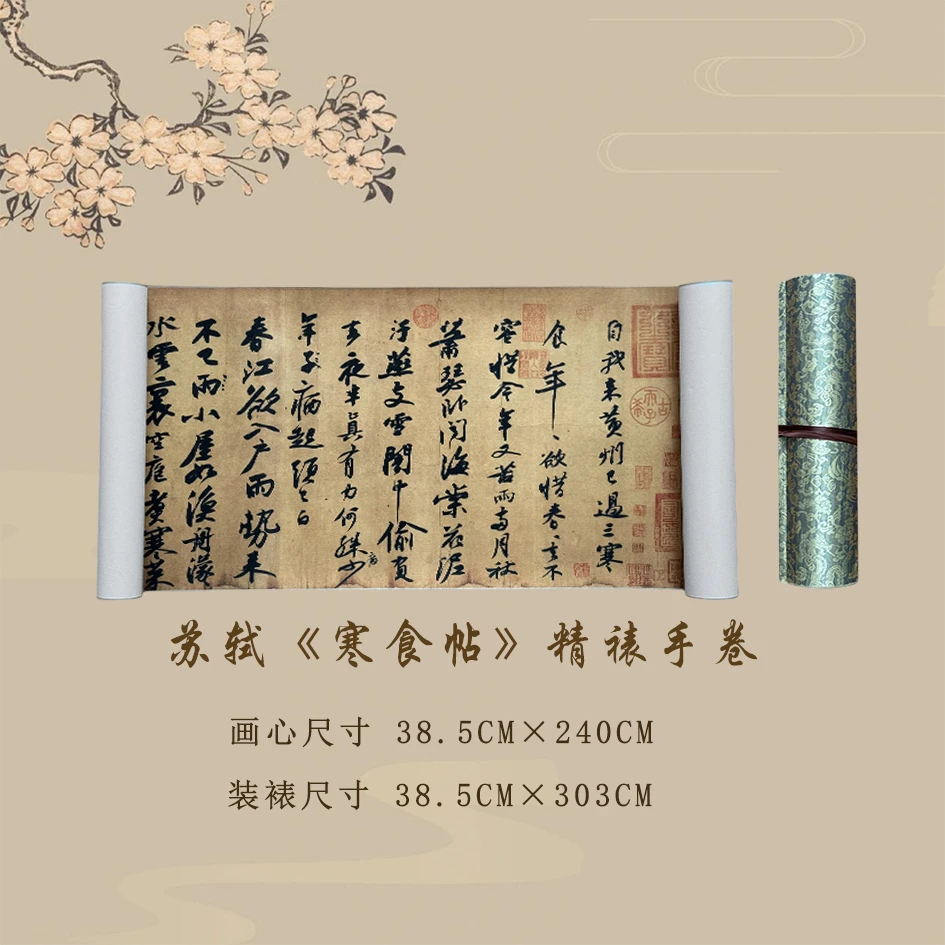 自我来黄州已過三寒
食年〻欲惜春〻去不
容惜今年又苦雨兩月秋
蕭瑟卧聞海棠花泥
汙燕支雪闇中偷負
去夜半真有力何殊少
年子病起頭已白
春江欲入户雨勢来
不已雨小屋如漁舟濛〻
水雲裏空庖煮寒菜
苏轼《寒食帖》精裱手卷
画心尺寸 38.5CM×240CM
装裱尺寸 38.5CM×303CM